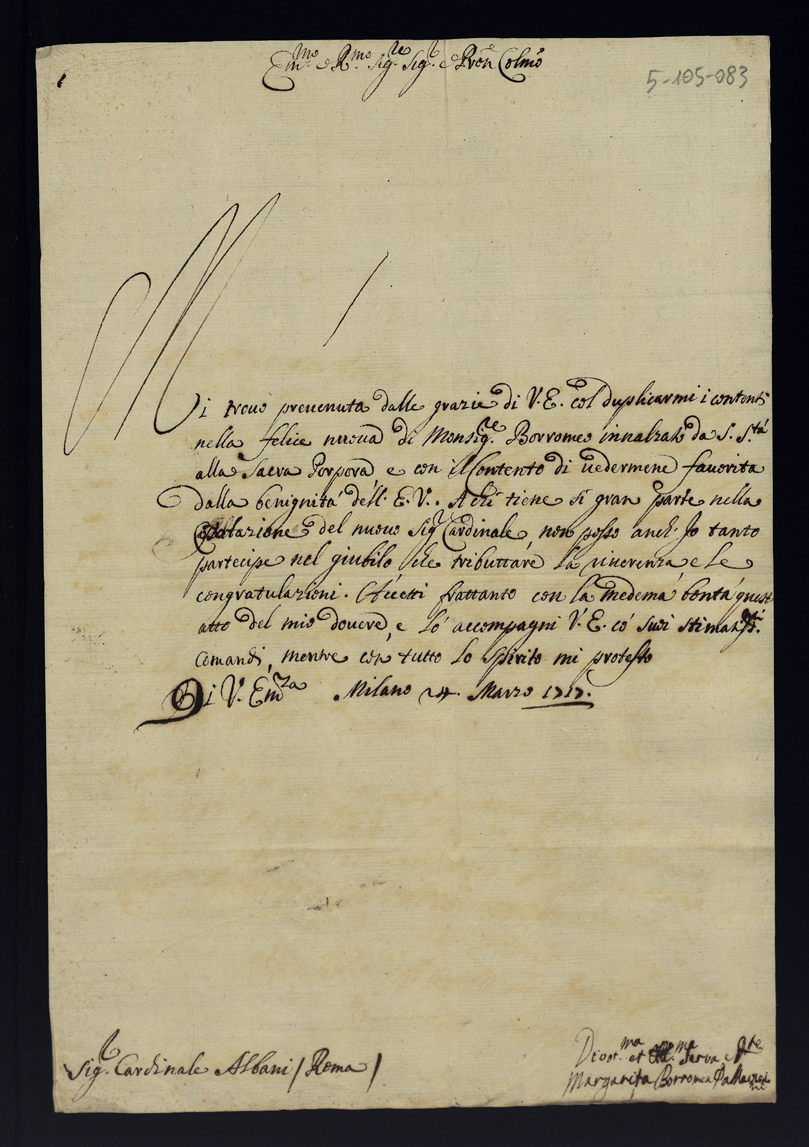 Em.mo e R.mo Sig.re Sig.r e Pron Colmo
5-105-083
Mi trovo prevenuta dalle grazie di V.E. col duplicarmi i contenti
nella felice nuova di Monsig.re Borromeo innalzato da S. S.tà
alla Sacra Porpora e con il Contento di vedermene favorita
dalla benignità dell' E.V.. A chi tiene sì gran parte nella
del nuovo Sig.r Cardinale, non posso anch' Jo tanto
partecipe nel giubilo che tributtare la riverenza e le
congratulazioni. Accetti frattanto con la medema bontà quest
atto del mio dovere, e lo accompagni V.E. co' suoi stimatis.mi
Comandi, mentre con tutto lo spirito mi protesto
Di V. Em.za Milano 24. Marzo 1717.
Sig.r Cardinale Albani / Roma /
Divot.ma et serva
Margarita Borromea Pallavicini